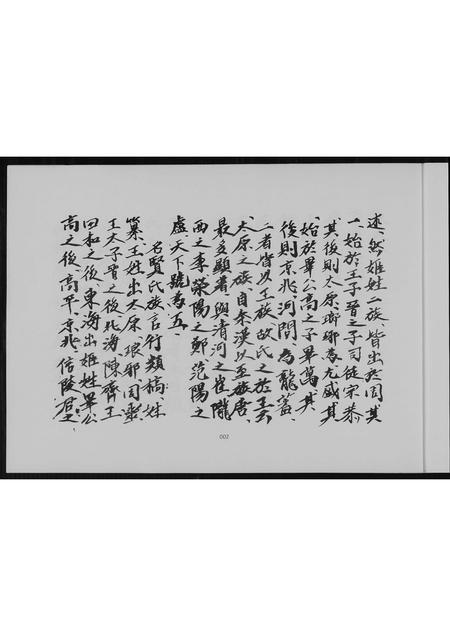 述、然姬姓二族、皆出於周、其
一、始於王子晉之子司徒宗恭、
其後則太原瑯琊爲尤盛、其
始於畢公高之子畢萬、其
後則京兆河間爲龍蓋、
二者皆以王族、故氏之於王云、
太原之族自秦漢以至族唐、
最多顯著與清河之崔隴
西之李滎陽之鄭范陽之
盧、天下號爲五、
名賢氏族言行類稿、姓
纂、王姓出太原、琅邪周靈
王太子晉之後北海陳齊王
田和之後東海出姬姓畢公
高之後、高平、京兆、信陵君之
002